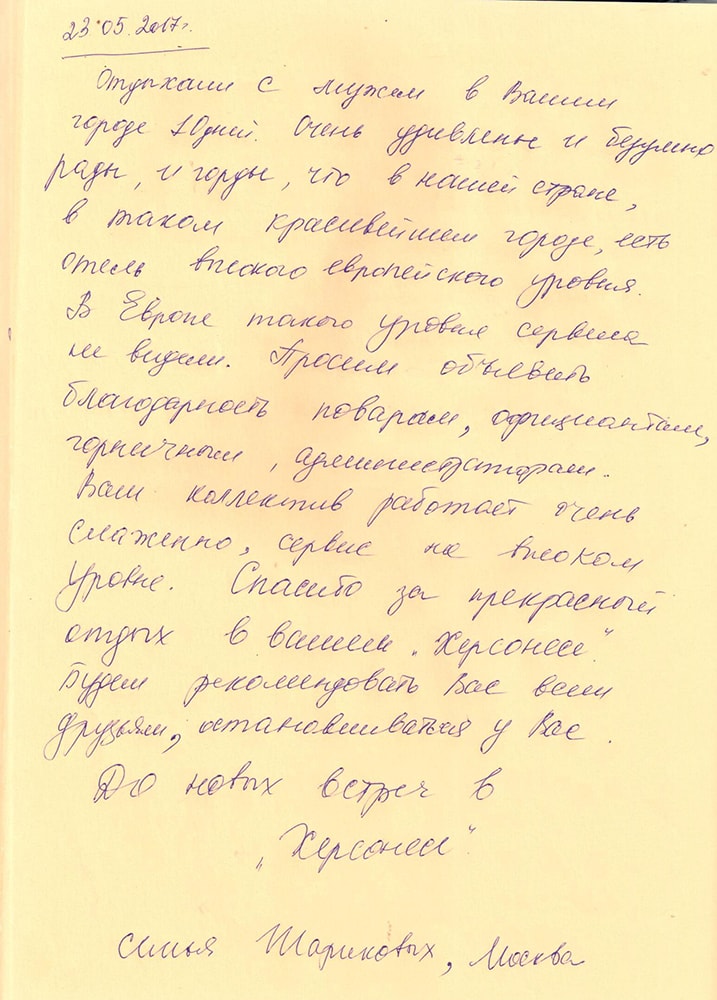 23.05.2017г.
Отдыхали с мужем в Вашем
городе 10дней. Очень удивлены и безумно
рады, и горды, что в нашей стране,
в таком красивейшем городе, есть
отель высокого европейского уровня.
В Европе такого уровня сервиса
не видели. Просим объявить
благодарность поварам, официантам,
горничным, администраторам.
Ваш коллектив работает очень
слаженно, сервис на высоком
уровне. Спасибо за прекрасный
отдых в вашем „Херсонесе"
Будем рекомендовать Вас всем
друзьям, останавливаться у Вас.
До новых встреч в
„Херсонесе"
семья Шариковых, Москва